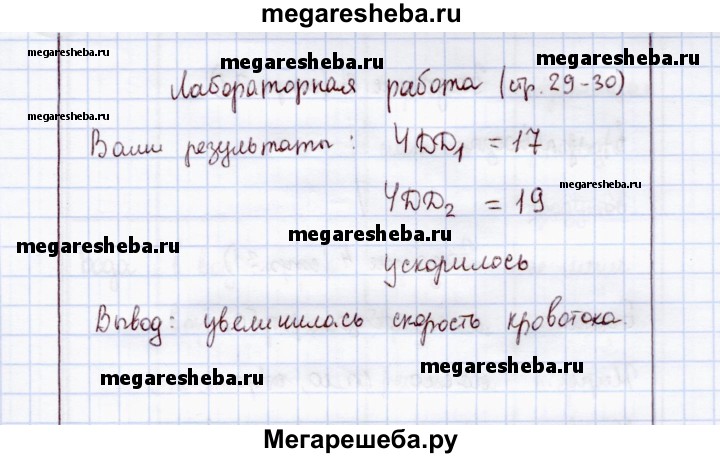 megaresheba.ru
megaresheba.ru megaresheba.ru megaresheba.ru
Лабораторная работа (стр. 29-30)
megaresheba.ru
Ваши результаты: ЧДД1 = 17
ЧДД2 = 19
megaresheba.ru
megaresheba.ru megaresheba.ru
ускорилось
Вывод: увеличилась скорость кровотока.
megaresheba.ru megaresheba.ru
Мегарешеба.ру